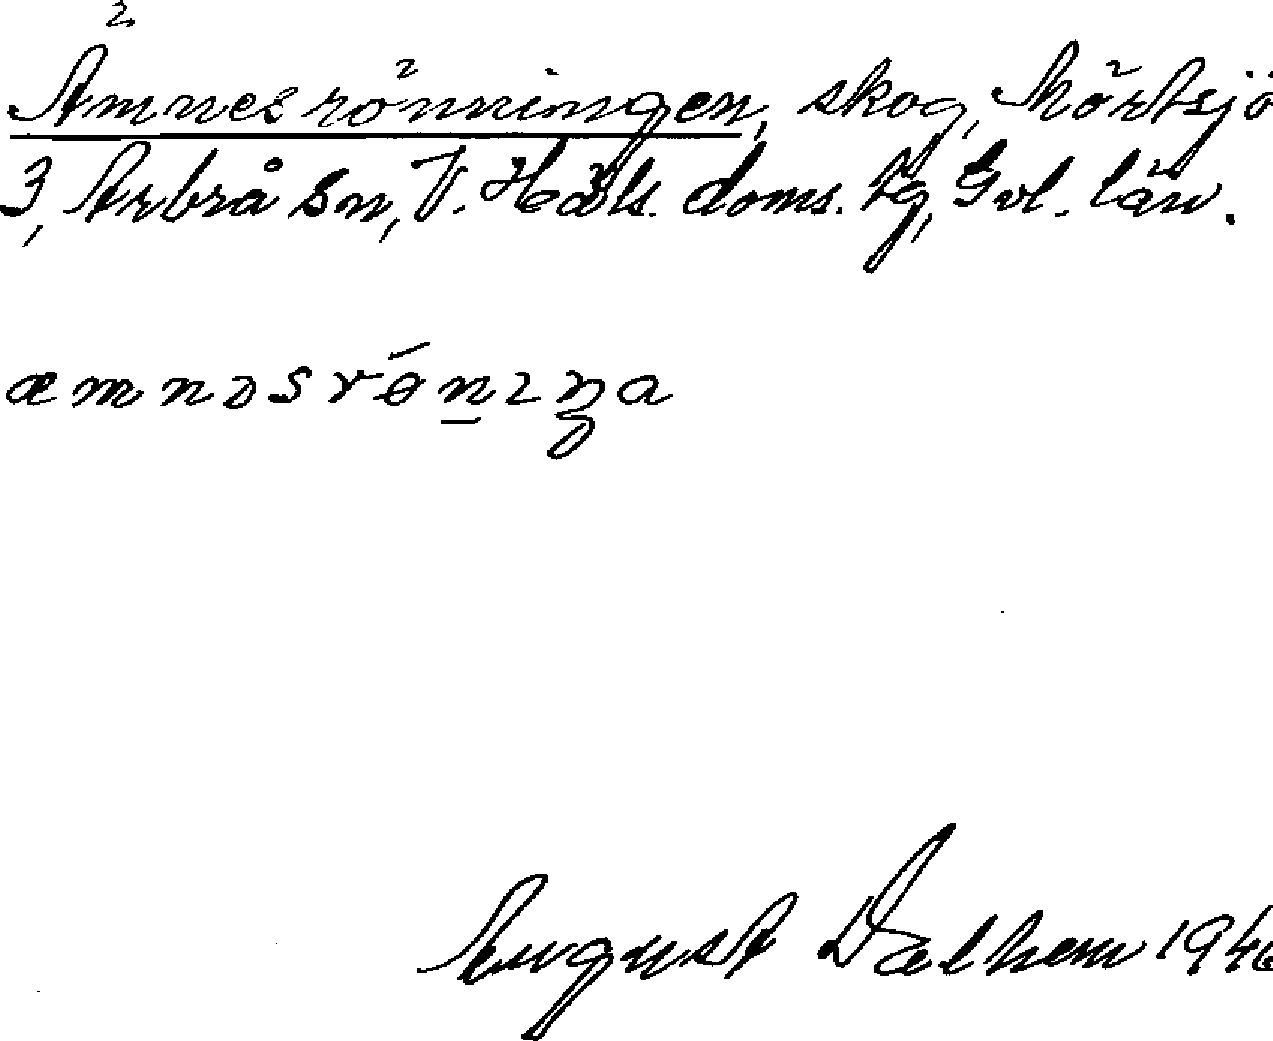 Ämnesrönningen, skog, Mörtsjö
3, Arbrå sn, V. Häls. doms. tg, Gvl. län.
æmnəsrǿn̲ɪŋa
August Dalhem 1946